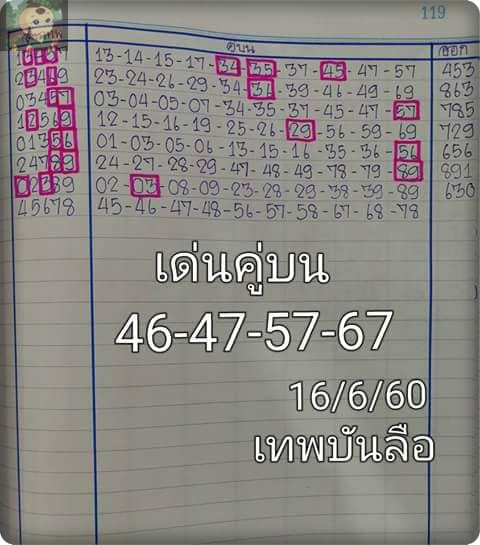 119
คู่บน ออก
13-14-15-17-34-35-37-45-47-57 453
23469 23-24-26-29-34-36-39-46-49-69 863
03457 03-04-05-07-34-35-37-45-47-57 785
12569 12-15-16-19-25-26-29-56-59-69 729
01356 01-03-05-06-13-15-16-35-36-56 656
24789 24-27-28-29-47-48-49-78-79-89 891
02389 02-03-08-09-23-28-29-38-39-89 630
45678 45-46-47-48-56-57-58-67-68-78
เด่นคู่บน
46-47-57-67
16/6/60
เทพบันลือ